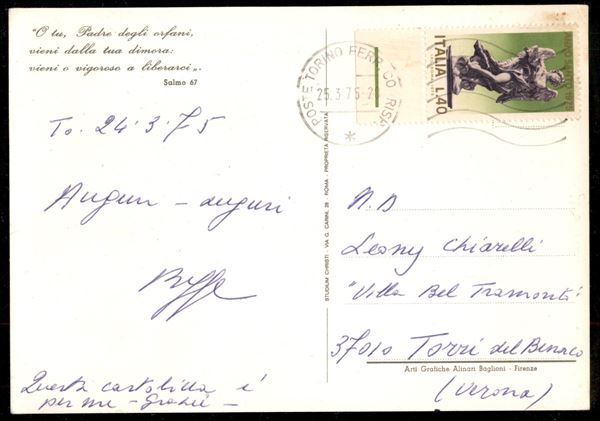 "O tu, Padre degli orfani,
vieni dalla tua dimora:
vieni o vigoroso a liberarci „.
Salmo 67
To. 24·3·75
Auguri – auguri
Questa cartolina è
per me – grazie –
STUDIUM CHRISTI - VIA G. CARINI, 28 - ROMA - PROPRIETÀ RISERVATA
POSTE TORINO FERR CO RISP
25.3.75-2
ITALIA L.40
N.D
Leony Chiarelli
"Villa Bel Tramonto"
37010 Torri del Benaco
Arti Grafiche Alinari Baglioni - Firenze
(Verona)